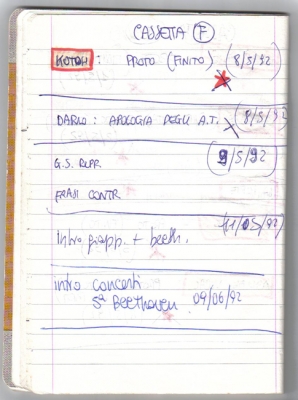 CASSETTA F
KOTOH : PROTO (FINITO) (8/5/92
DARIO : APOLOGIA DEGLI A.T. (8/5/92
G.S. RUPR. (9/5/92
FRASI CONTR
Intro giapp. + beeth. (11/05/92)
intro concerti
5ª BEETHOVEN 09/06/92